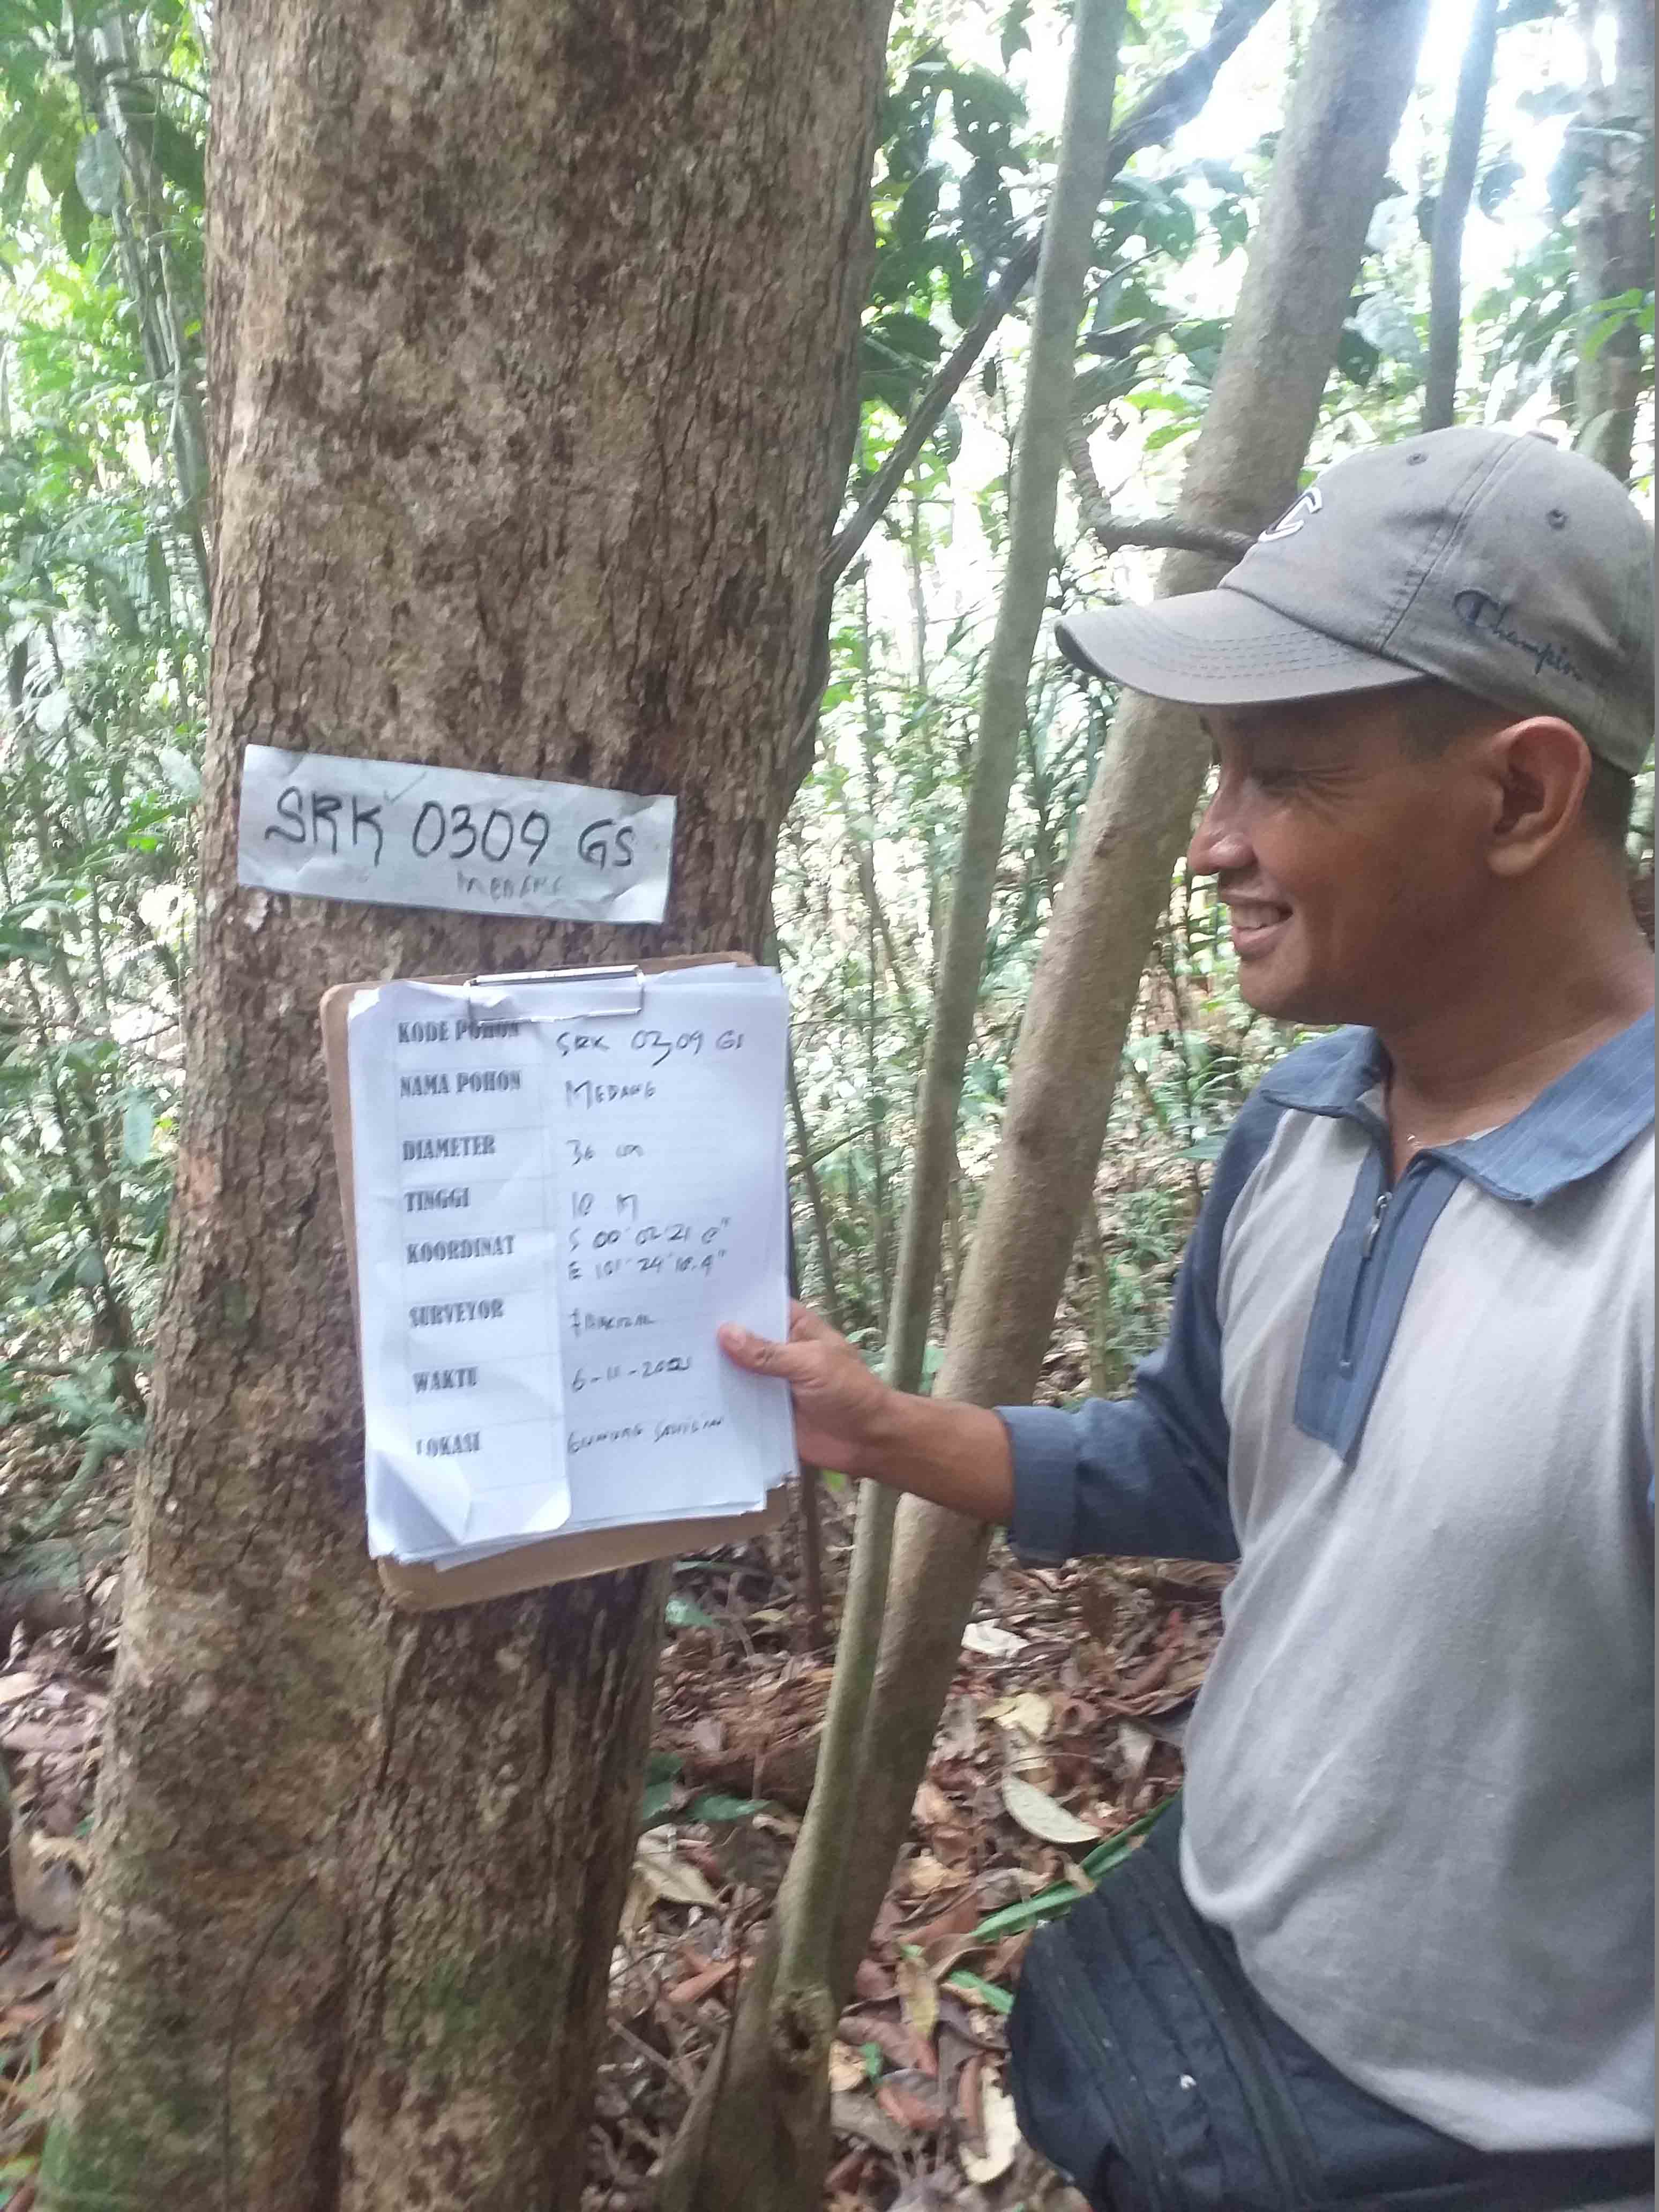 SRK 0309 GS
MEDANG
Champion
KODE POHON SRK 0309 GS
NAMA POHON MEDANG
DIAMETER 36 cm
TINGGI 10 M
KOORDINAT S 00° 02' 21
E 101° 24' 10.4"
SURVEYOR
WAKTU 6-11-
LOKASI GUNUNG SAHILAN